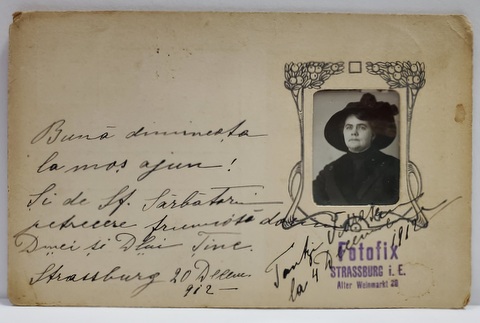 Bună dimineața
la moș ajun!
Și de Sf. Sărbători
petrecere frumoasă
Dnei și Dlui Tinc.
Strassburg 20 Decem
912 –
Tanti
la 4 Decem 1912
Fotofix
STRASSBURG i. E.
Alter Weinmarkt 26